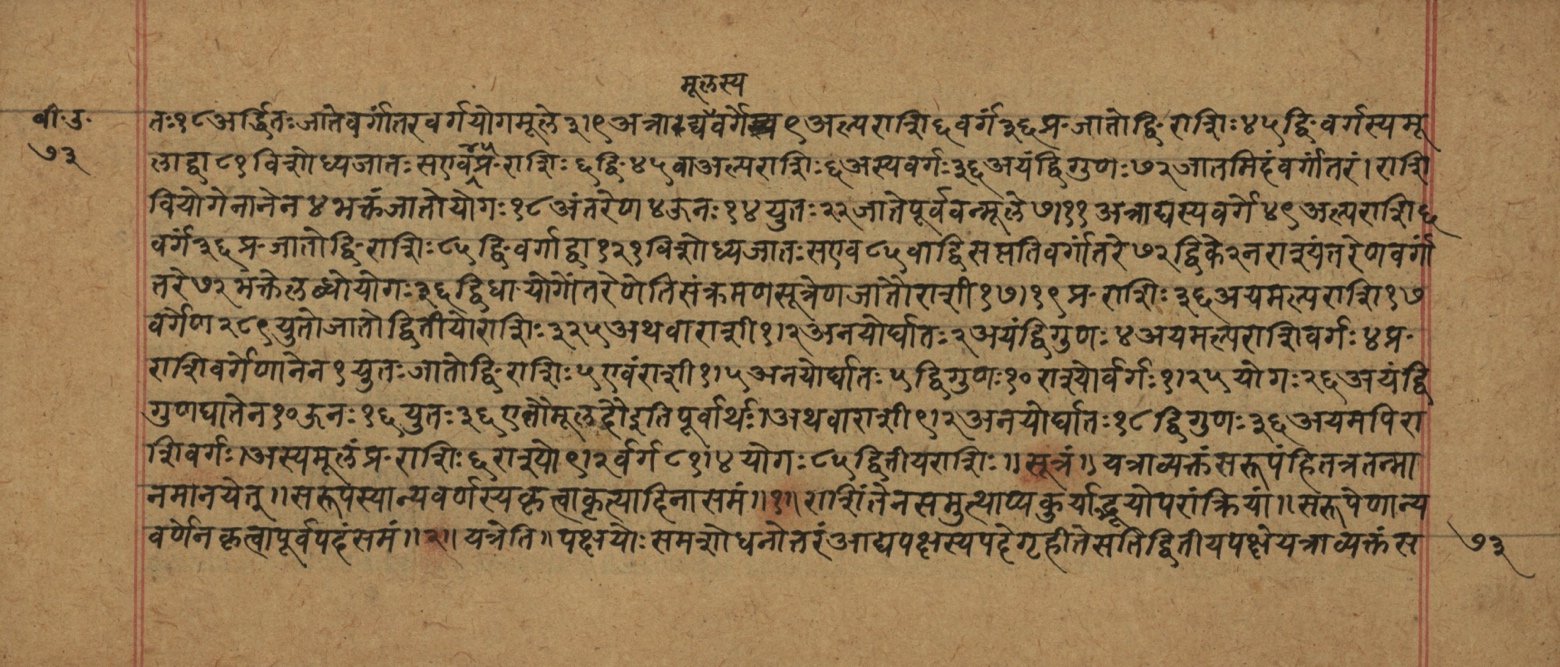 मूलस्य
बी॰उ॰
७३
तः१८अर्द्धितःजातेवर्गांतरवर्गयोगमूले३।९अत्राद्यवर्गे९अल्पराशि६वर्ग३६प्र॰जातोद्वि॰राशिः४५द्वि॰वर्गस्यमू
लाद्वा८१विशोध्यजातःसएवप्र॰राशिः६द्वि॰४५वाअल्पराशिः६अस्यवर्गः३६अयंद्विगुणः७२जातमिहंवर्गांतरं।राशि
वियोगेनानेन४भक्तंजातोयोगः१८अंतरेण४ऊनः१४युतः२२जातेपूर्ववन्मूले७।११अत्राद्यस्यवर्गे४९अल्पराशि६
वर्ग३६प्र॰जातोद्वि॰राशिः८५द्वि॰वर्गाद्वा१२१विशोध्यजातःसएव८५वाद्विसप्ततिवर्गांतरे७२द्विके२नराश्यंतरेणवर्गां
तरे७२भक्तेलब्धोयोगः३६द्विधायोगोंतरेणेतिसंक्रमणसूत्रेणजातौराशी१७।१९प्र॰राशिः३६अयमल्पराशि१७
वर्गेण२८९युतोजातोद्वितीयोराशिः३२५अथवाराशी१।२अनयोर्घातः२अयंद्विगुणः४अयमल्पराशिवर्गः४प्र॰
राशिवर्गेणानेन१युतःजातोद्वि॰राशिः५एवंराशी१।५अनयोर्घातः५द्विगुणः१०राश्योर्वर्गः१।२५योगः२६अयंद्वि
गुणघातेन१०ऊनः१६युतः३६एतौमूलदौइतिपूर्वार्थः।अथवाराशी९।२अनयोर्घातः१८द्विगुणः३६अयमपिरा
शिवर्गः।अस्यमूलंप्र॰राशिः६राश्यो९।२र्वर्ग८१।४योगः८५द्वितीयराशिः॥सूत्रं॥यत्राव्यक्तंसरूपंहितत्रतन्मा
नमानयेत्॥सरूपस्यान्यवर्णस्यकृत्वाकृत्यादिनासमं॥१॥राशिंतेनसमुत्थाप्यकुर्याद्भूयोपरांक्रियां॥सरूपेणान्य
वर्णेनकृत्वापूर्वपदंसमं॥२॥यत्रेति॥पक्षयोःसमशोधनोत्तरंआद्यपक्षस्यपदेगृहीतेसतिद्वितीयपक्षेयत्राव्यक्तंस
७३